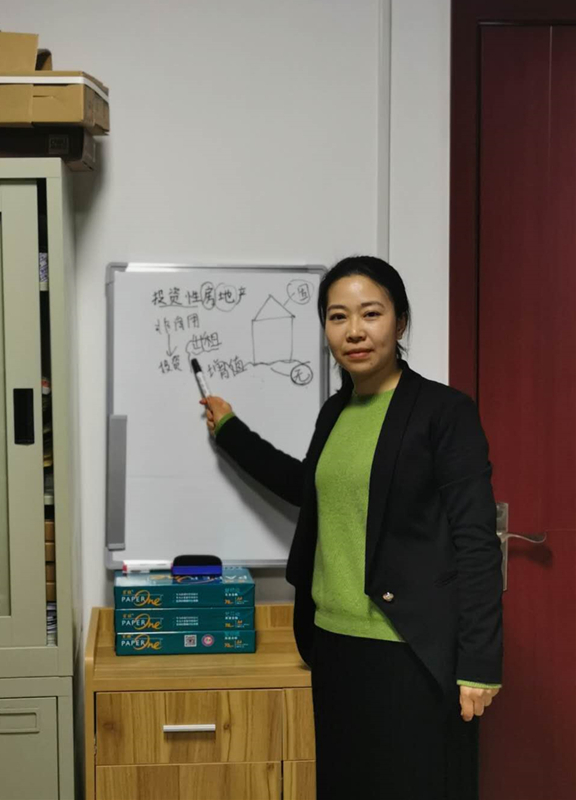 投资性房地产
固
非自用
出租
投资
增值
无
PAPER One
PAPER One
PAPER One